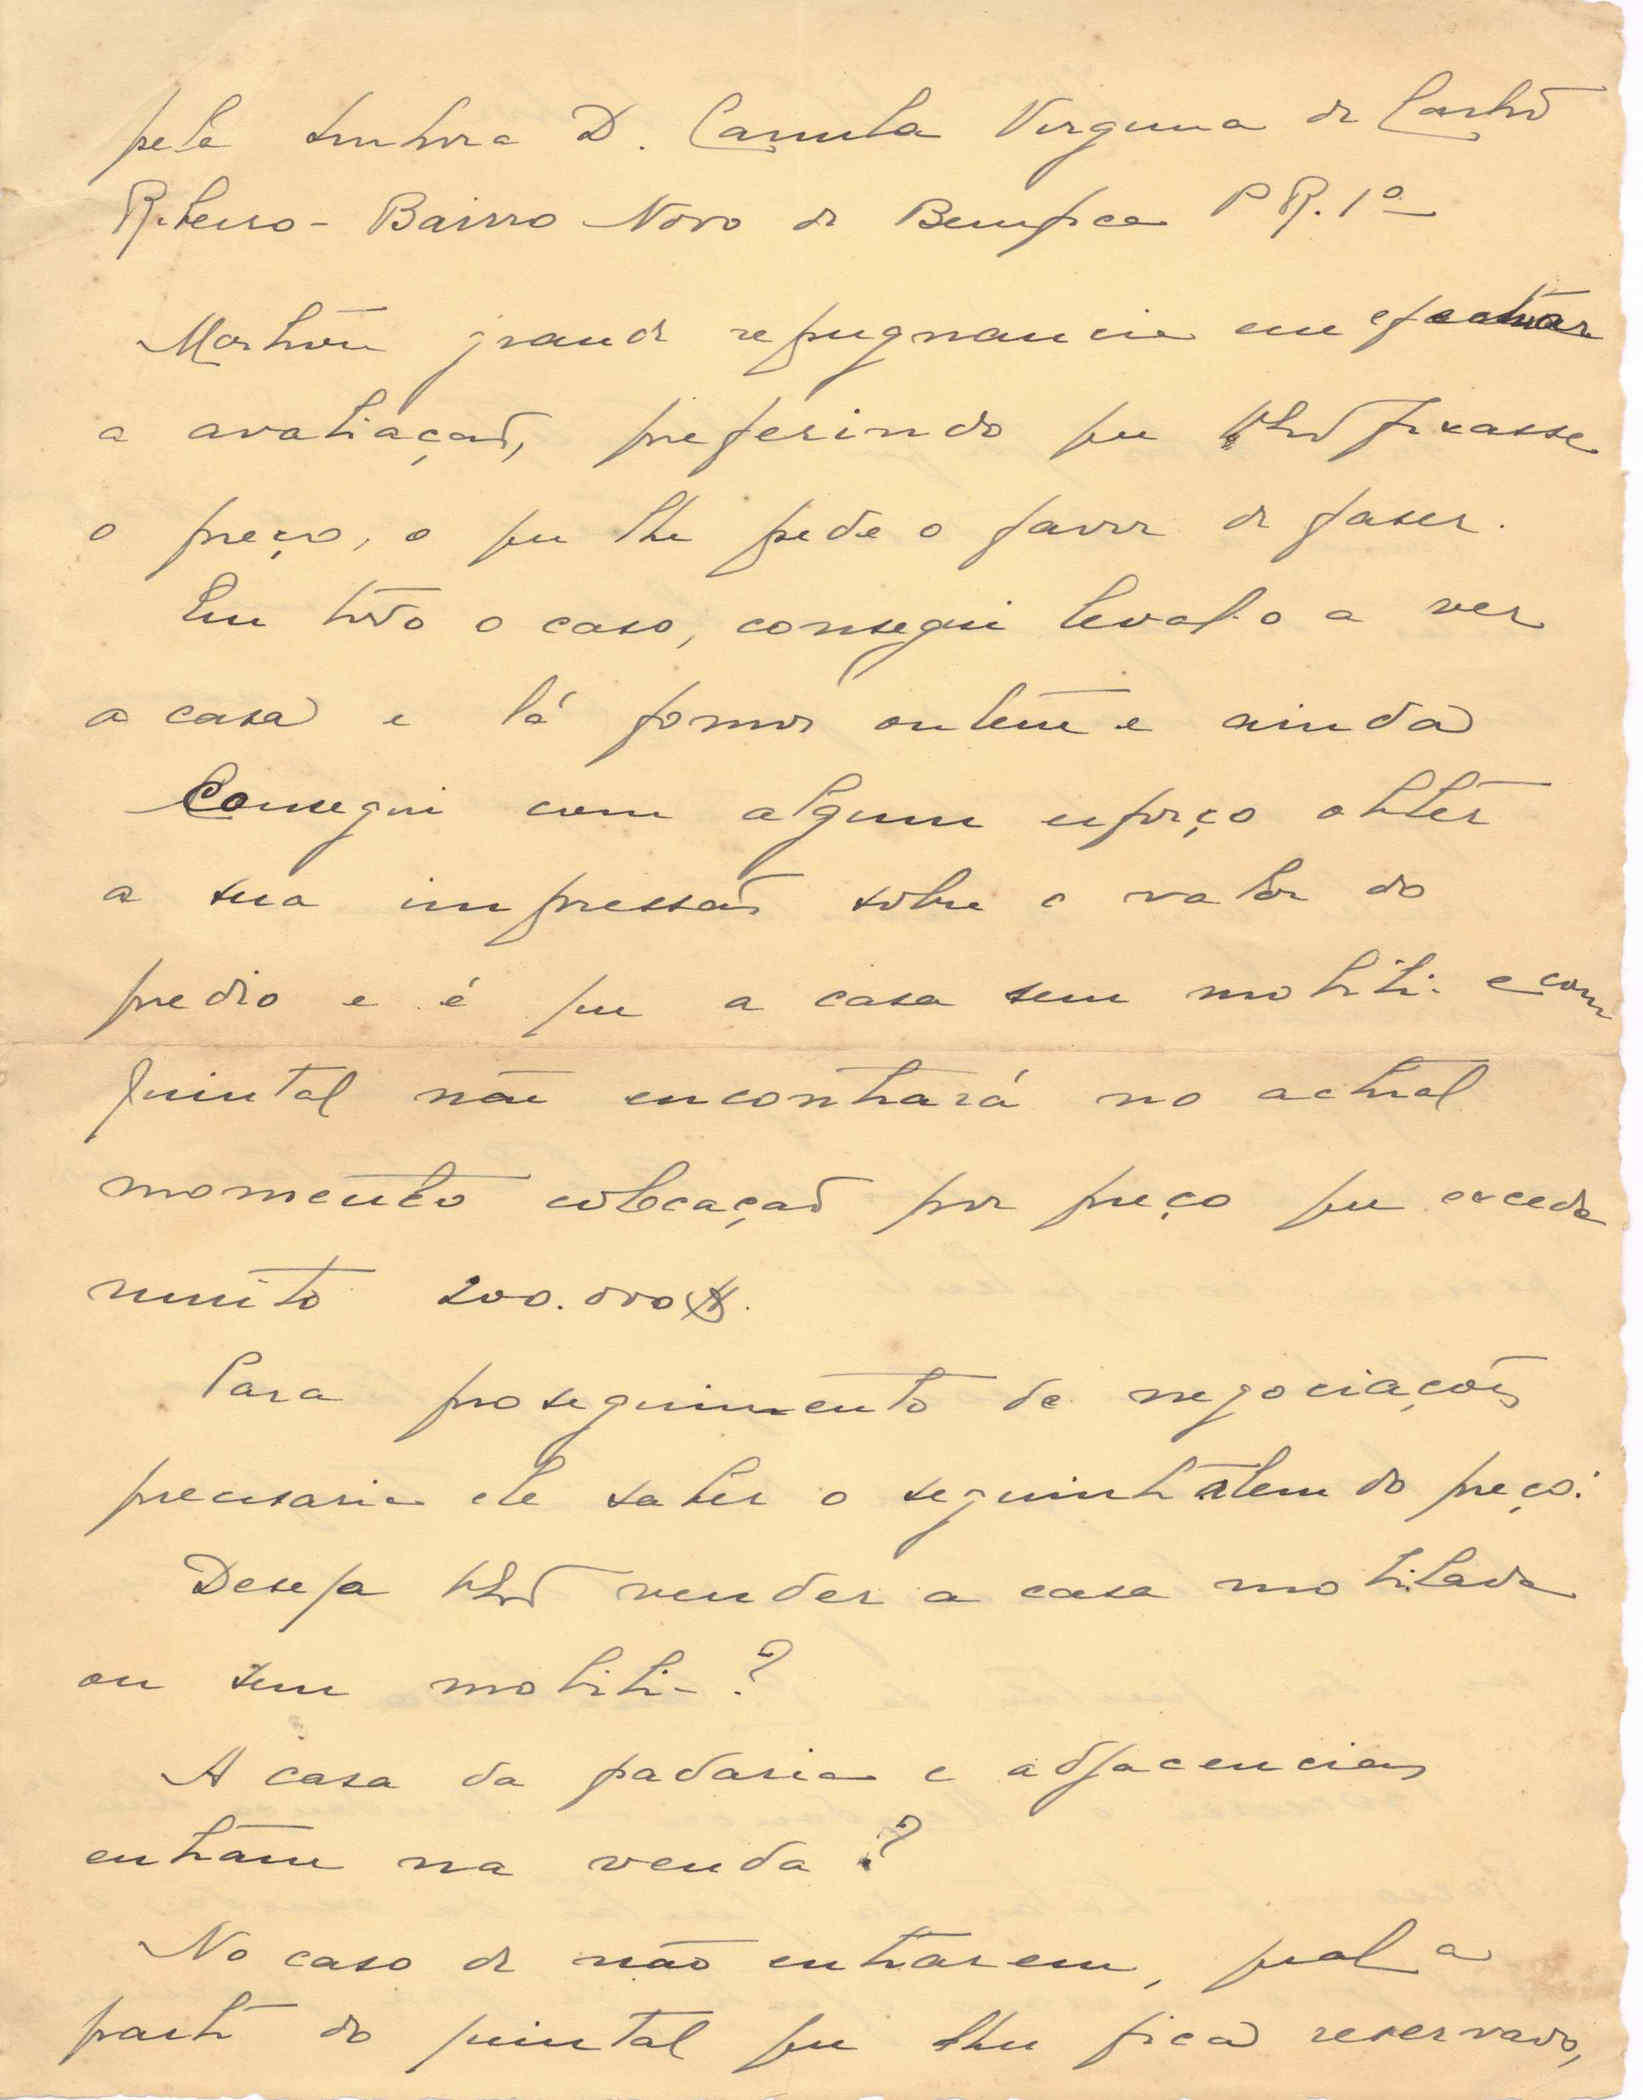 pela senhora D. Camila Virginia de Castro
Ribeiro - Bairro Novo de Bemfica P R. 1º
Mostrou grande repugnancia em efectuar
a avaliação, preferindo que fixasse
o preço, o que lhe pede o favor de faser.
Em todo o caso, consegui leval-o a ver
a casa e lá fomos ontem e ainda
Consegui com algum esforço obter
a sua impressão sobre o valor do
predio e é que a casa sem mobilia e com
quintal não encontrará no actual
momento colocação por preço que exceda
muito 200.000$.
Para proseguimento de negociações
precisaria ele saber o seguinte alem do preço:
Deseja vender a casa mobilada
ou sem mobilia?
A casa da padaria e adjacencias
entram na venda?
No caso de não entrarem, qual a
parte do quintal que lhe fica reservado,